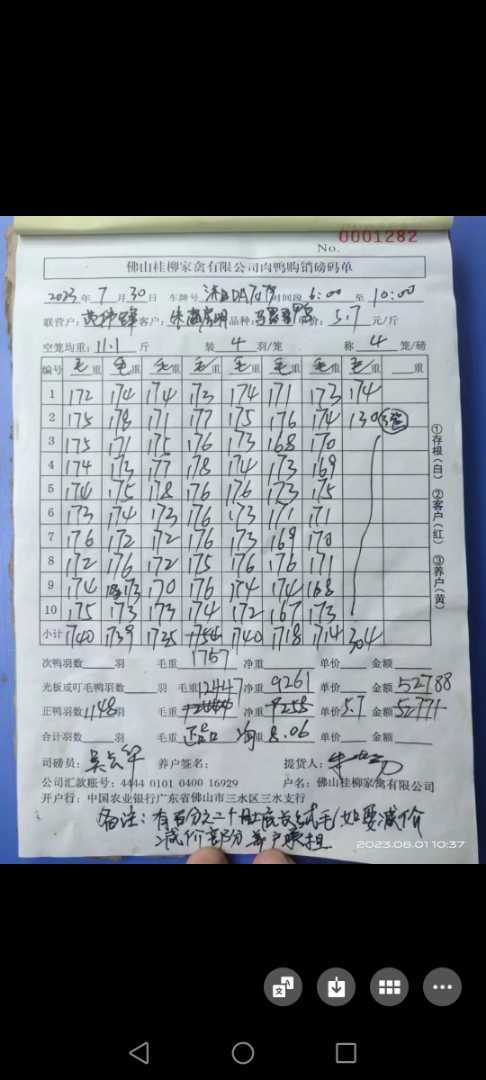 No. 0001282
佛山桂柳家禽有限公司肉鸭购销磅码单
2023年7月30日 车牌号 时间段6:00至10:00
联营户: 客户: 品种: 价:5.7元/斤
空笼均重:11.1斤 装4羽/笼 称4笼/磅
编号 毛重 毛重 毛重 毛重 毛重 毛重 毛重 毛重 重
1 172 174 174 173 174 171 173 174
2 175 178 171 177 175 176 174 130
3 175 171 175 176 173 168 170
4 174 173 177 178 174 173 169
5 174 175 178 176 176 173 175
6 173 174 173 176 173 171 171
7 176 172 172 176 173 169 170
8 172 176 172 175 176 176 171
9 174 173 170 176 174 174 168
10 175 173 173 174 172 167 173
小计 1740 1739 1735 1740 1718 1714 304
1757
次鸭羽数 羽 毛重 净重 单价 金额
光板或盯毛鸭羽数 羽 毛重12447净重9261 单价 金额52788
正鸭羽数1148羽 毛重 净重9258 单价5.7金额52771
合计羽数 羽 毛重 净重 8.06 单价 金额
司磅员: 养户签名: 提货人:
公司汇款账号:4444 0101 0400 16929 户名:佛山桂柳家禽有限公司
开户行:中国农业银行广东省佛山市三水区三水支行
备注:有百分之二十肚底长绒毛,如要减价
减价部分养户承担
①存根(白) ②客户(红) ③养户(黄)
2023.08.01 10:37